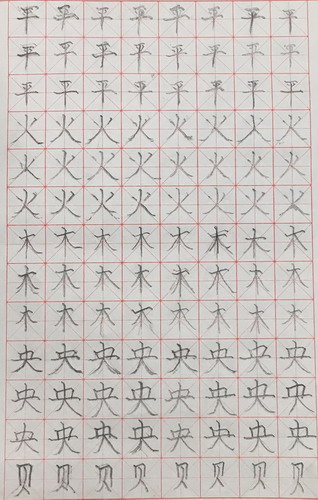 平平平平平平平平
平平平平平平平平
平平平平平平平平
火火火火火火火火
火火火火火火火火
火火火火火火火火
木木木木木木木木
木木木木木木木木
木木木木木木木木
央央央央央央央央
央央央央央央央央
央央央央央央央央
贝贝贝贝贝贝贝贝